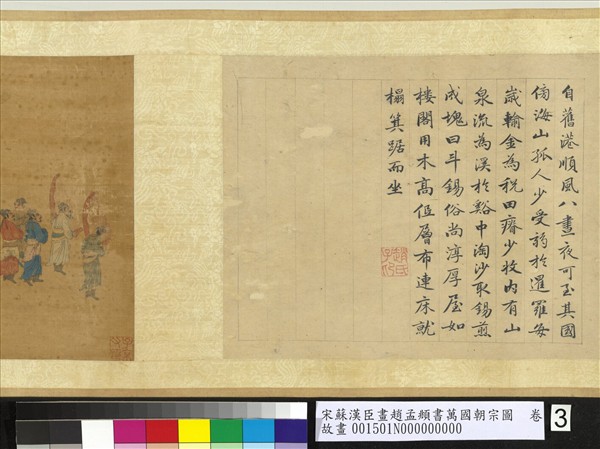 自舊港順風八晝夜可至其國
傍海山孤人少受羈於暹羅每
歲輸金為稅田瘠少收內有山
泉流為溪於谿中淘沙取錫煎
成塊曰斗錫俗尚淳厚屋如
樓閣用木高低層布連床就
榻箕踞而坐
宋蘇漢臣畫趙孟頫書萬國朝宗圖 卷 3
故畫 001501N000000000